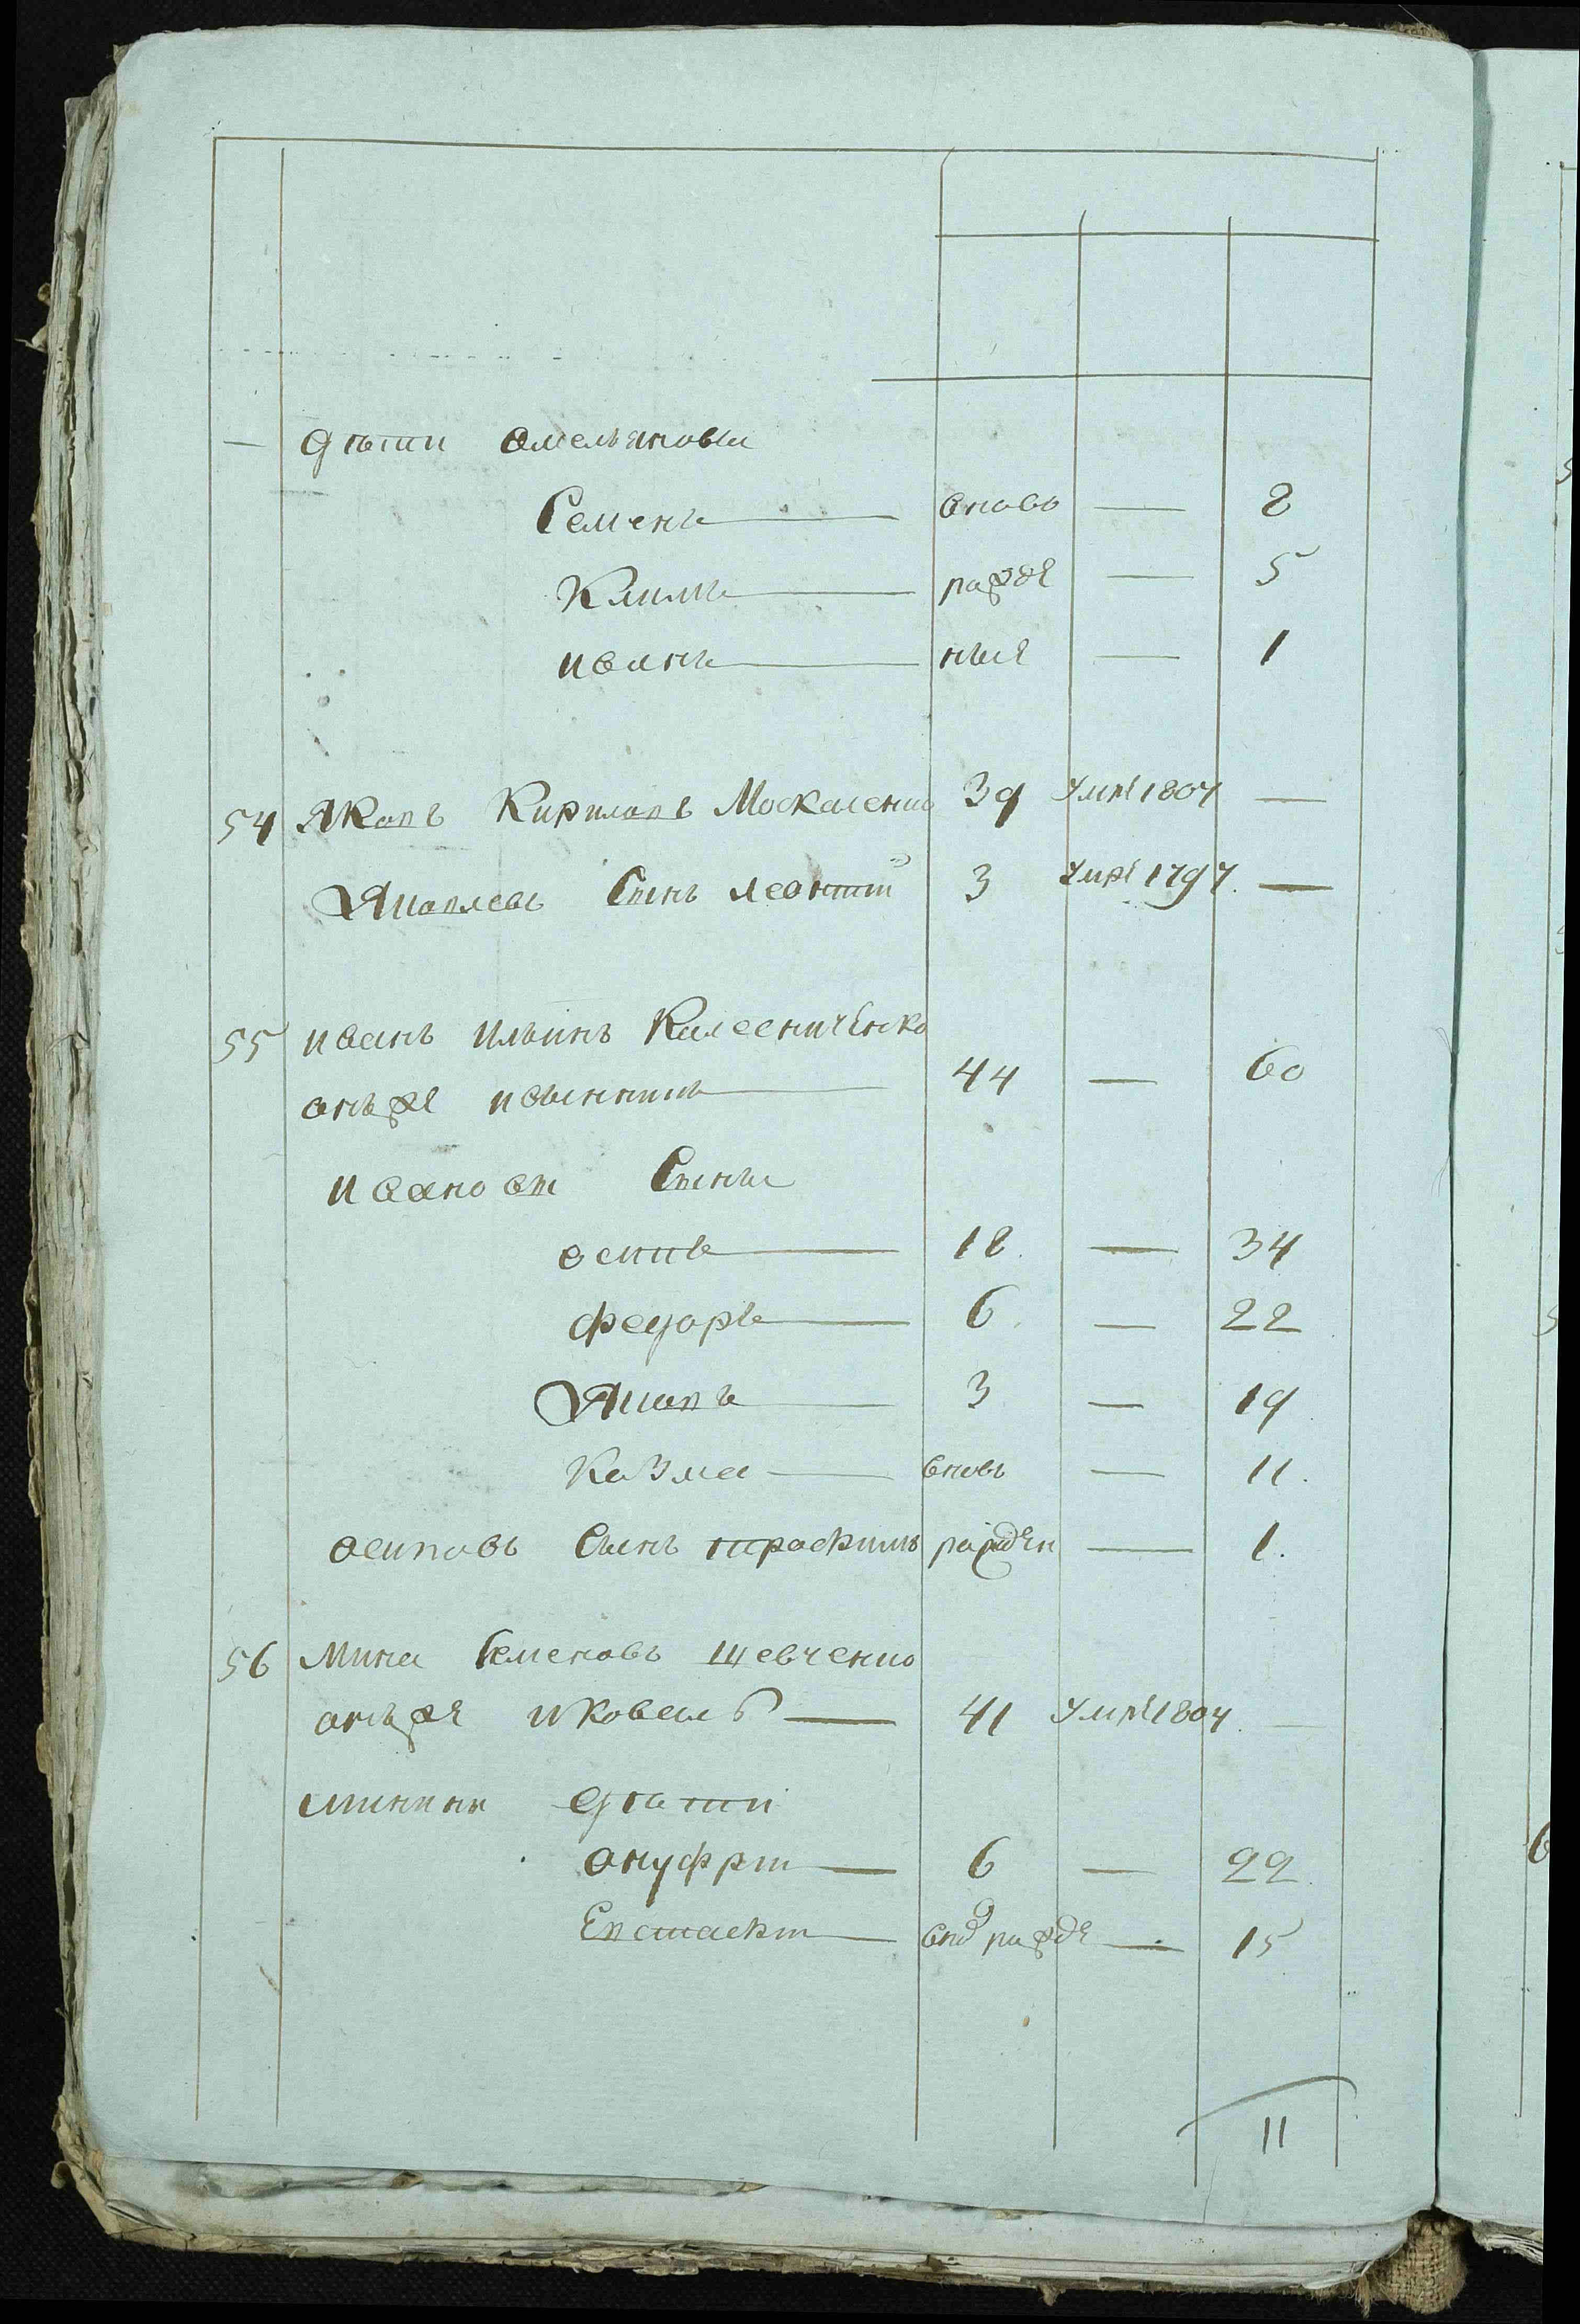 — дѣти омельяновы
Семенъ — вновь — 8
Климъ — рожде — 5
иванъ — ные — 1
54 Яковъ Кириловъ Москаленко 39 умре 1807 —
Яковлевъ Сынъ леонтий 3 умре 1797. —
55 иванъ ильинъ Калесниченко
онъ же — 44 — 60
ивановы Сыны
осипъ — 18. — 34
федоръ — 6. — 22
Яковъ — 3 — 19
Казма — вновь — 11.
осиповъ Сынъ трофимъ рожден — 1.
56 Мина Семеновъ Шевченко
онъ же и Коваль — 41 умре 1804. —
минины дѣти
онуфри — 6 — 22.
Евстафи — внов рожде — 15
11